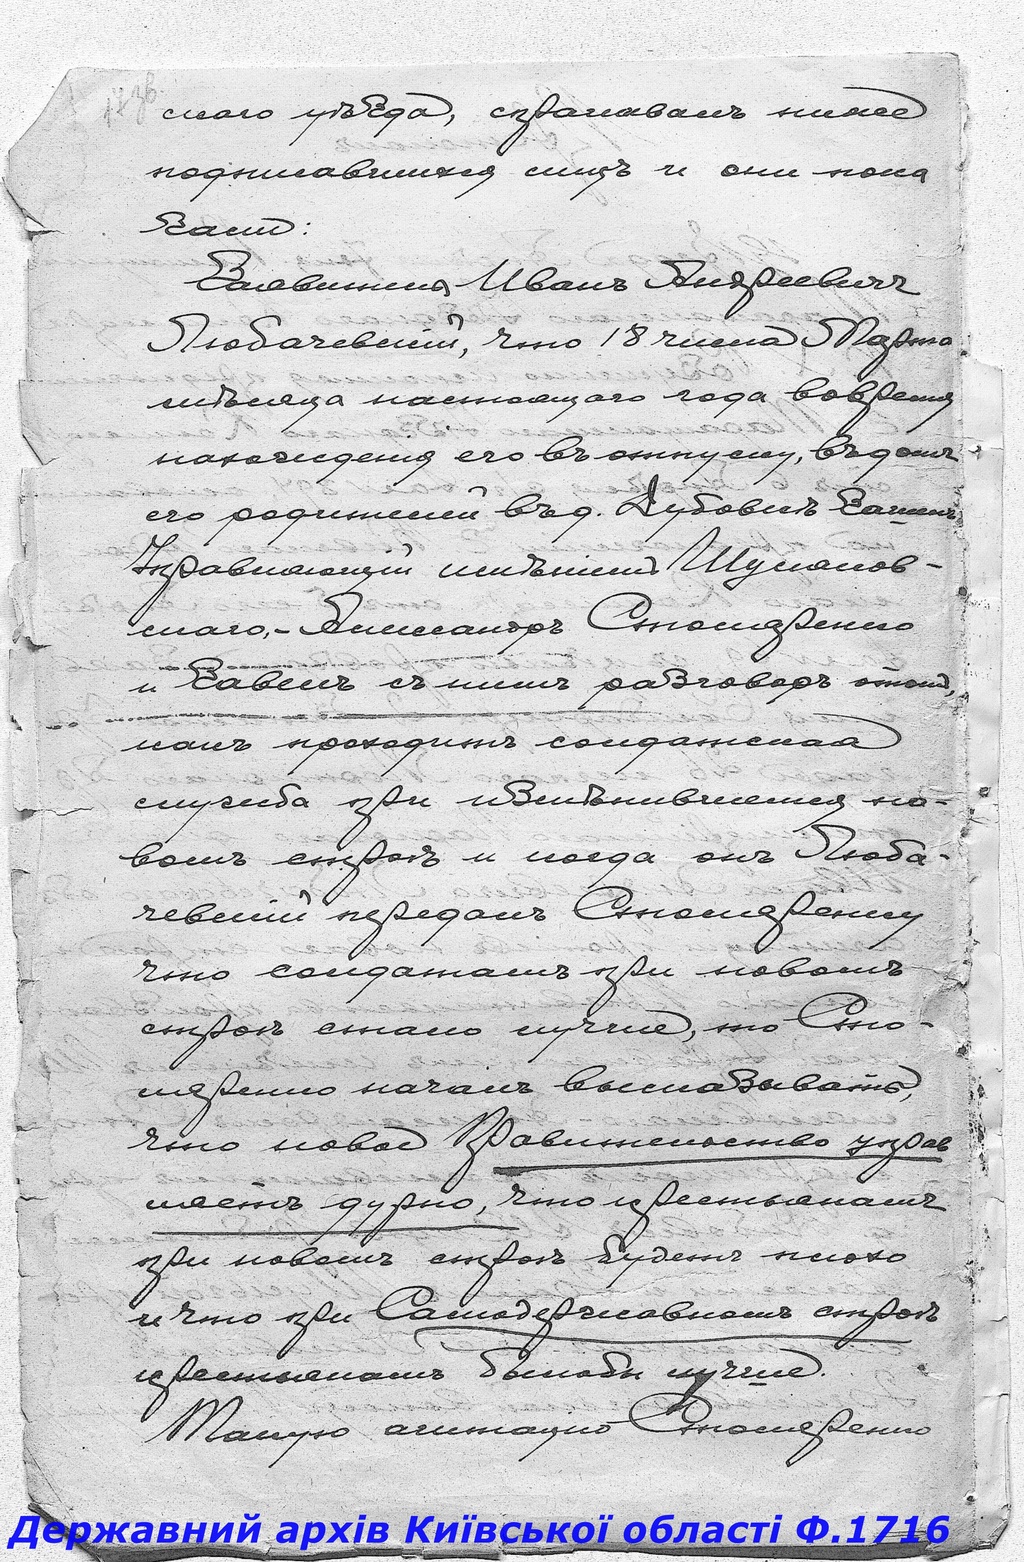 скаго уѣзда, спрашивалъ ниже
подписавшихся лицъ и они пока
зали:
Заявителя Иванъ Андреевичъ
Любачевскій, что 18 числа Марта
мѣсяца настоящаго года вовремя
нахожденія его въ отпуску, въ домъ
его родителей въ д. Дубовикъ Зашелъ
Управляющій имѣніемъ Шуманов-
скаго, - Александръ Столяренко
и Завелъ съ нимъ разговоръ отомъ,
какъ проходитъ солдатская
служба при измѣнившемся но-
вомъ строѣ и когда онъ Люба-
чевскій передалъ Столяренку
что солдатамъ при новомъ
строѣ стало лучше, то Сто-
ляренко началъ высказывать,
что новое Правительство управ
ляетъ дурно, что крестьянамъ
при новомъ строѣ будетъ плохо
и что при Самодержавномъ строѣ
крестьянамъ былобы лучше.
Такую агитацію Столяренко
Державний архів Київської області Ф.1716